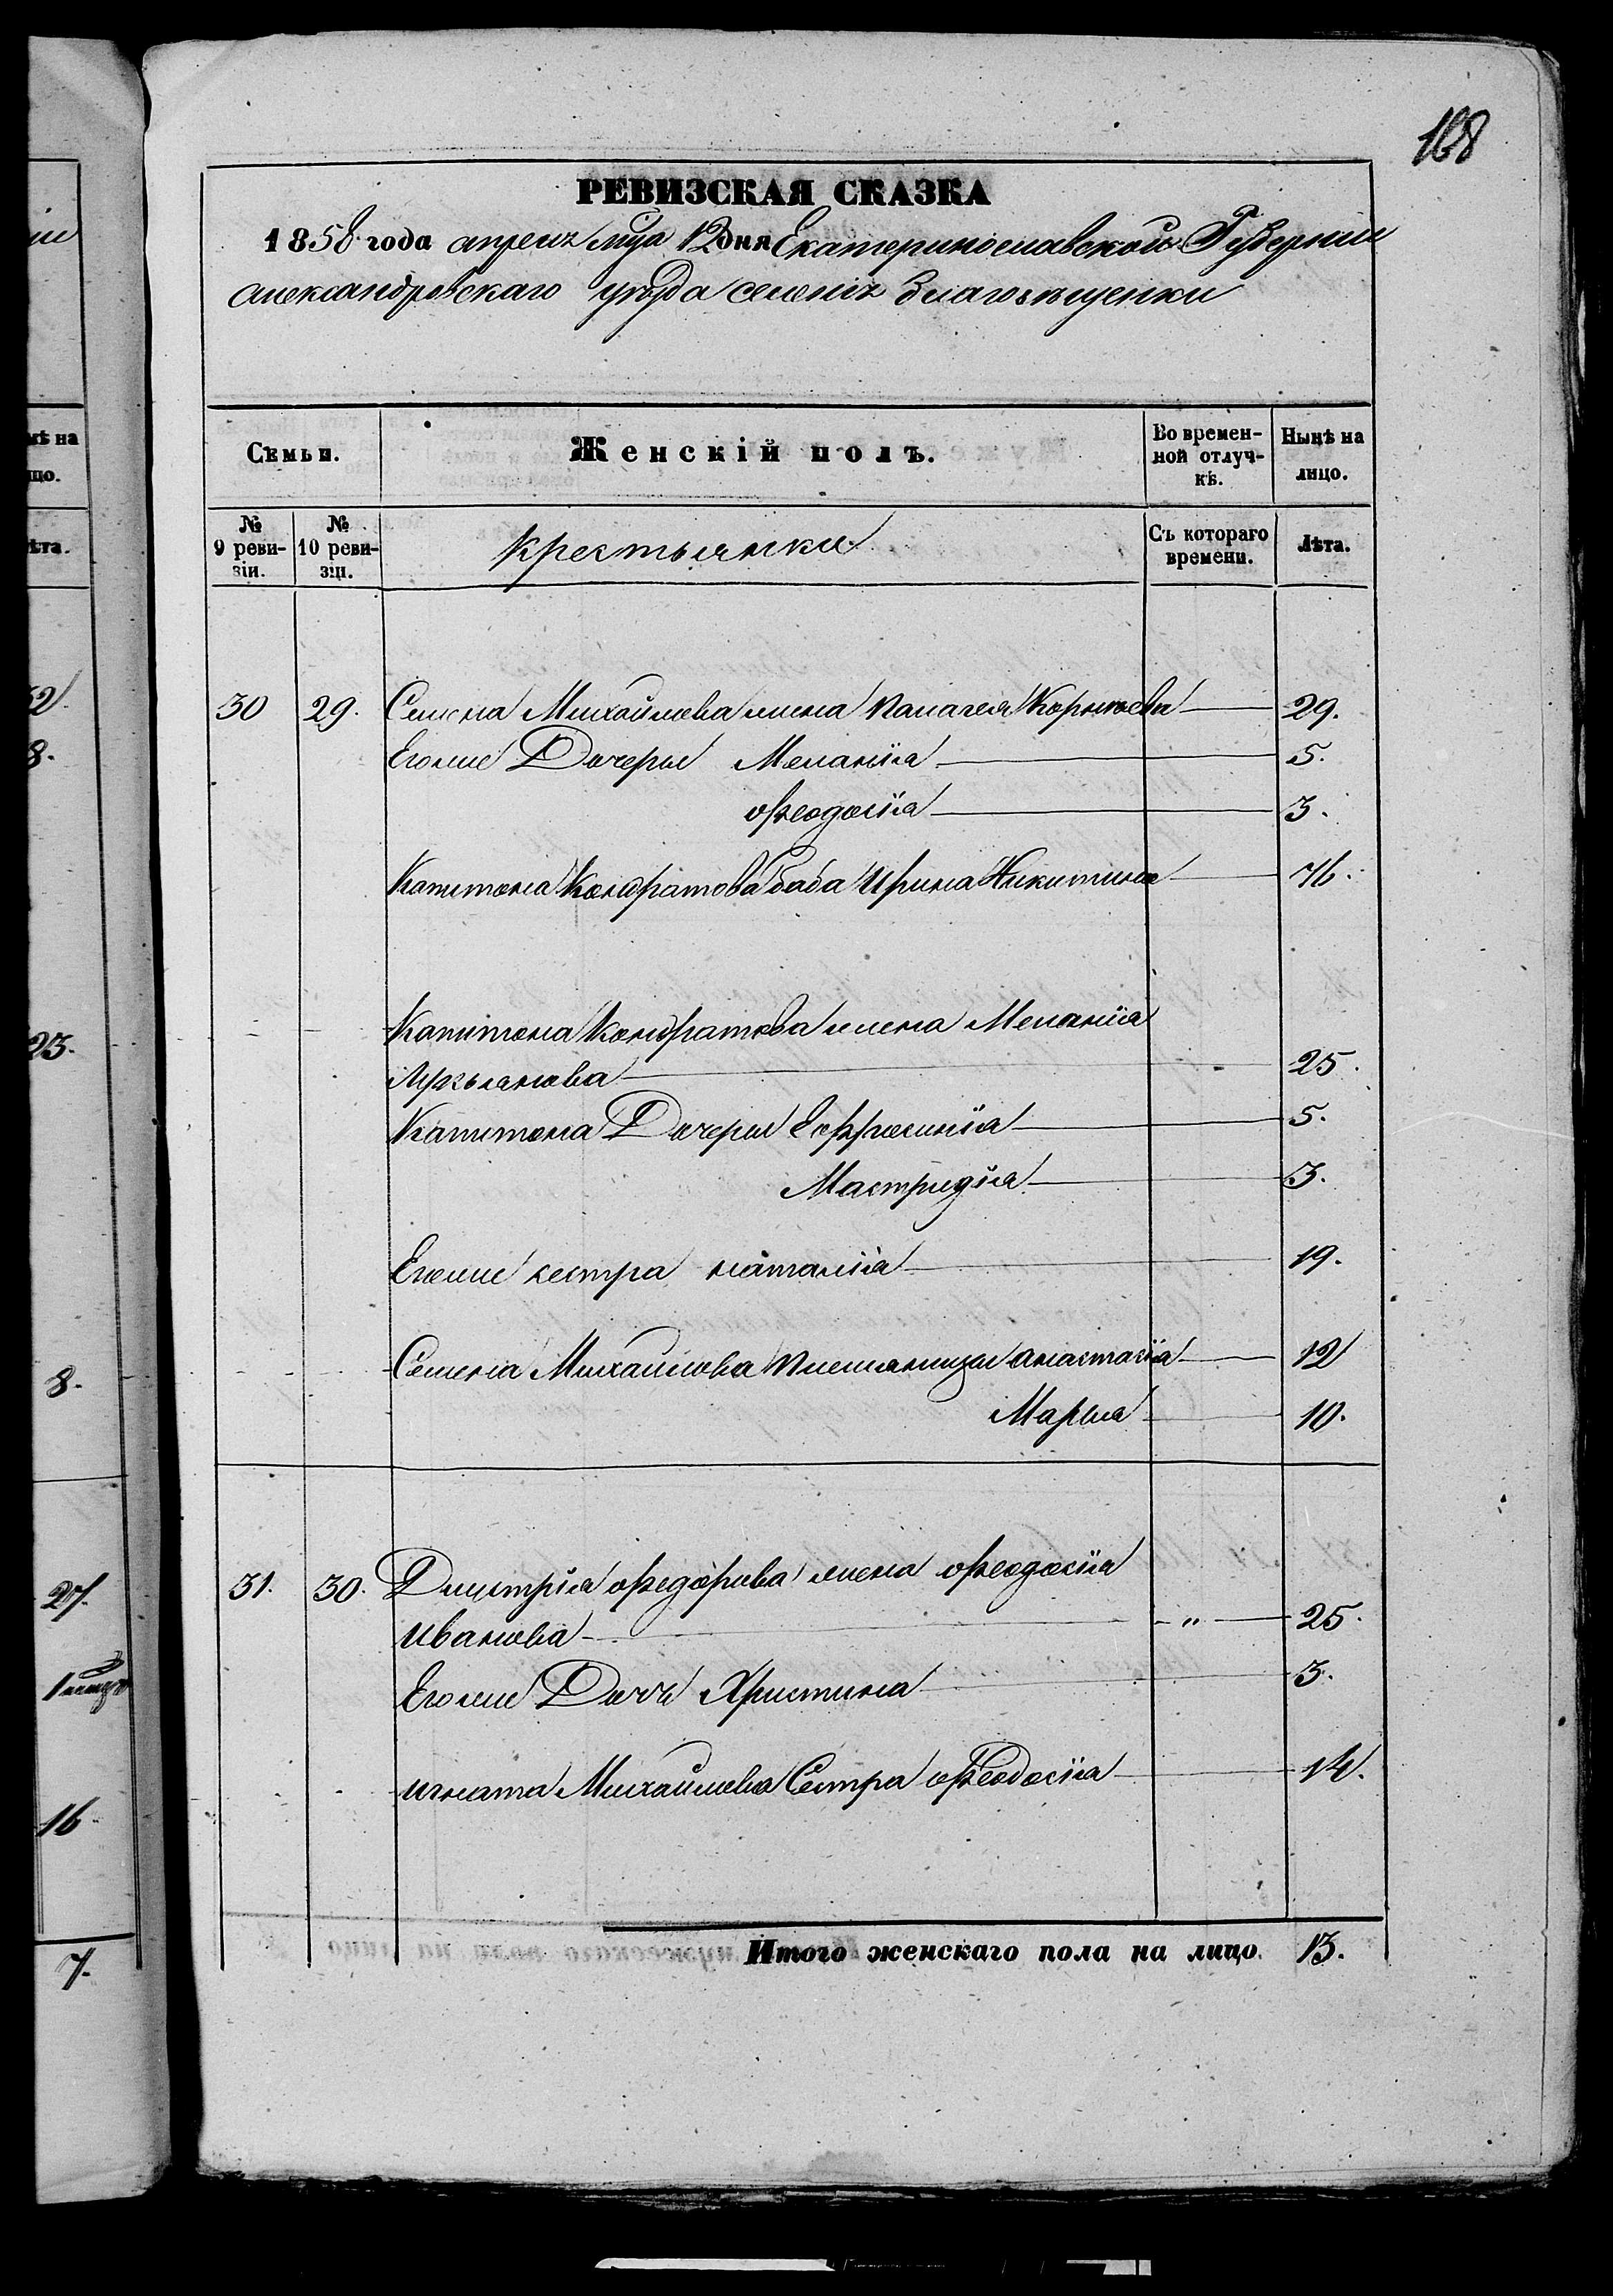 168
РЕВИЗСКАЯ СКАЗКА
1858 года апреля мца 12 дня Екатеринославской Губернии
александровскаго уезда селенія Благовещенки
Семьи.
Женскій полъ.
Во времен-
ной отлуч-
кѣ.
Нынѣ на
лицо.
№
9 реви-
зіи.
№
10 реви-
зіи.
крестьянки
Съ котораго
времени.
Лѣта.
30 29. Семена Михайлова жена Палагея Корнеева 29.
Егоже Дочери Меланія 5.
Феодосія 3.
Капитона Кондратова баба Ирина Никитина 76.
Капитона Кондратова жена Меланія
Лукьянова 25.
Капитона Дочери Ефросинія 5.
Мастридія 3.
Егоже сестра наталія 19.
Семена Михайлова племяницы анастасія 12
Марья 10.
31. 30. Дмитрія Федорова жена Феодосія
Иванова " 25.
Егоже Дочь Христина 3.
игната Михайлова Сестра Феодосія 14.
Итого женскаго пола на лицо. 13.
мѣ на
цо.
ѣта.
32.
8.
23.
8.
27.
16
7.